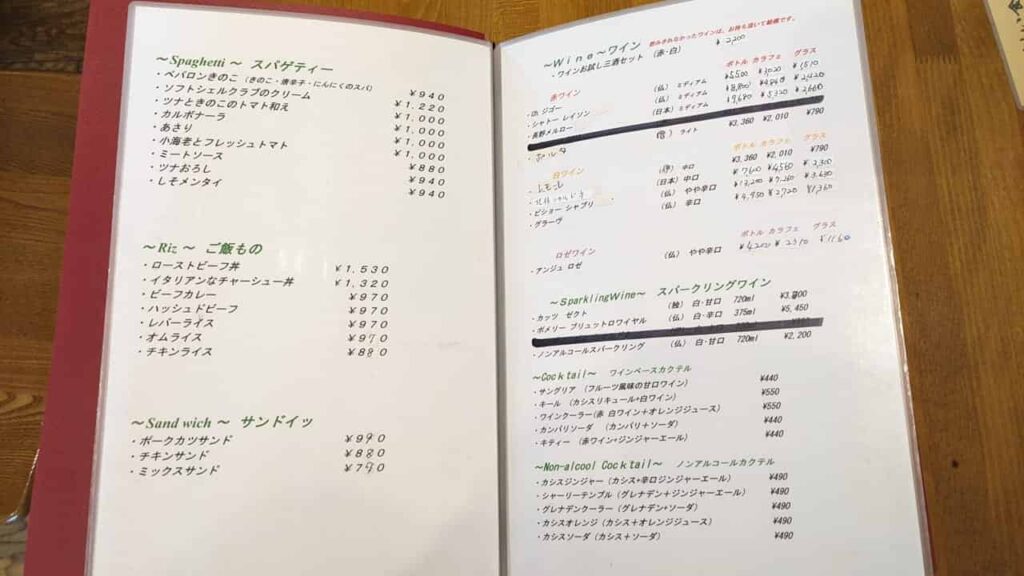 ～Spaghetti～ スパゲティー
・ペパロンきのこ（きのこ・唐辛子・にんにくのスパ） ¥940
・ソフトシェルクラブのクリーム ¥1,220
・ツナときのこのトマト和え ¥1,000
・カルボナーラ ¥1,000
・あさり ¥1,000
・小海老とフレッシュトマト ¥1,000
・ミートソース ¥880
・ツナおろし ¥940
・しそメンタイ ¥940
～Riz～ ご飯もの
・ローストビーフ丼 ¥1,530
・イタリアンなチャーシュー丼 ¥1,320
・ビーフカレー ¥970
・ハッシュドビーフ ¥970
・レバーライス ¥970
・オムライス ¥970
・チキンライス ¥880
～Sand wich～ サンドイッ
・ポークカツサンド ¥990
・チキンサンド ¥880
・ミックスサンド ¥790
～Wine～ワイン 飲みきれなかったワインは、お持ち頂いて結構です。
・ワインお試し三酒セット （赤・白） ¥2,200
赤ワイン ボトル カラフェ グラス
・Dr.ジゴー （仏） ミディアム ¥5,500 ¥3,020 ¥1,510
・シャトー レイソン （仏） ミディアム ¥8,800 ¥4,840 ¥2,420
・長野メルロー （日本） ミディアム ¥9,680 ¥5,320 ¥2,660
ライト ¥3,360 ¥2,010 ¥790
白ワイン ボトル カラフェ グラス
辛口 ¥3,360 ¥2,010 ¥790
（日本） 中口 ¥7,600 ¥4,560 ¥2,300
・ビショー シャブリ （仏） やや辛口 ¥13,200 ¥7,260 ¥3,630
・グラーヴ （仏） 辛口 ¥4,950 ¥2,720 ¥1,360
ロゼワイン ボトル カラフェ グラス
・アンジュ ロゼ （仏） やや辛口 ¥4200 ¥2310 ¥1160
～SparklingWine～ スパークリングワイン
・カッツ ゼクト （独） 白・甘口 720ml
・ポメリー ブリュットロワイヤル （仏） 白・辛口 375ml ¥5,450
・ノンアルコールスパークリング （仏） 白・甘口 720ml ¥2,200
～Cocktail～ ワインベースカクテル
・サングリア （フルーツ風味の甘口ワイン） ¥440
・キール （カシスリキュール+白ワイン） ¥550
・ワインクーラー（赤 白ワイン＋オレンジジュース） ¥550
・カンパリソーダ （カンパリ＋ソーダ） ¥440
・キティー （赤ワイン・ジンジャーエール） ¥440
～Non-alcool Cocktail～ ノンアルコールカクテル
・カシスジンジャー（カシス+辛口ジンジャーエール） ¥490
・シャーリーテンプル（グレナデン＋ジンジャーエール） ¥490
・グレナデンクーラー（グレナデン+ソーダ） ¥490
・カシスオレンジ（カシス＋オレンジジュース） ¥490
・カシスソーダ（カシス＋ソーダ） ¥490